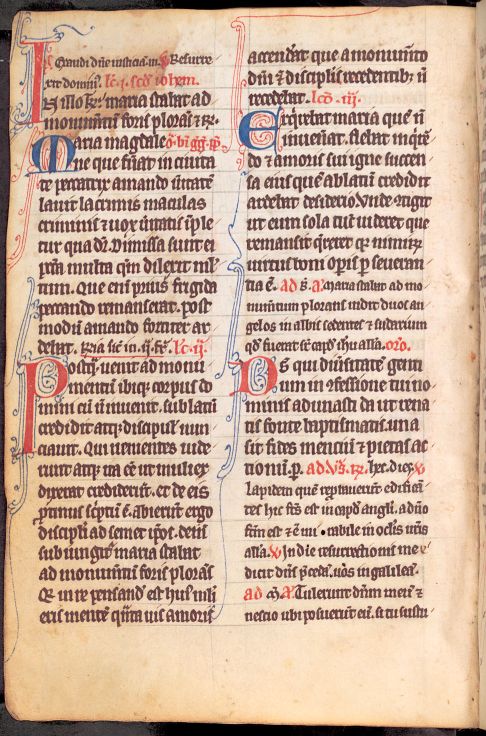 exaudi dn̄e iusticiā m. ℣ Resurre
xit dominꝰ. lc̄. i. scd̄ ioh̄em.
IN illo t̄. maria stabat ad
monumētū foris plorās ⁊ r̄.
Maria magdale om̄. bt̄i gḡ pp̄.
ne que fūat in ciuita
te peccatrix amando uītatē
lauit lacrimis maculas
criminis ⁊ uox uītatis īple
tur qua dr̄. Dimissa sunt ei
pctā multa qm̄ dilexit mlꝰ
tum. Que eni priꝰ frigida
peccando remanserat. post
modū amando fortiter ar
debat. lc̄. ij.
Postqꝫ uenit ad monu
mentū ibiqꝫ corpus do
mini cū nō inuenit. sublatū
credidit atqꝫ discipulꝭ nun
ciauit. Qui uenientes uide
runt atqꝫ ita eē ut mulier
dixerat crediderūt. et de eis
ptinus sc̄ptū ē. abierūt ergo
discipli ad semet ip̄os. deīn
subiungitꝰ maria stabat
ad monumētū foris plorās
Qua in re pensandū est huiꝰ mli
eris mentē quāta uis amoris
accenderat que a monumēto
dn̄i ⁊ discipulis recedentibꝫ nō
recedebat. lcō. iij.
Exquirebat maria quē nō
inueniat. flebat inqirē
do ⁊ amoris sui igne succen
sa eius quē ablatū credidit
ardebat desiderio. Unde ꝯtigit
ut eum sola tūc uideret que
remansit querēt qꝫ nimirꝫ
uirtus boni opis pseueran
tia ē. ad b. a Maria stabat ad mo
numētum plorans uidit duos an
gelos in albis sedentes ⁊ sudarium
qd̄ fuerat sr̄ capd̄ ihū alla. oro.
Ds̄ qui diūsitatē genti
um in ꝯfessione tui no
minis adunasti da ut rena
tis fonte baptismatis una
sit fides mentiū ⁊ pietas ac
tionū. p. ad vs̄. r̄. hec dies ℣
lapidem quē reprobauerūt edifican
tes hic fcs̄ est in capd̄ anguli. a dn̄o
fcm̄ est ⁊ ē mirabile in oclis nr̄is
alla. ℣ In die resurrectionis me
dicit dn̄s pcedā uos in galileā.
ad m̄. a Tulerunt dn̄m meū ⁊
nescio ubi posuerūt eū. si tu sustu